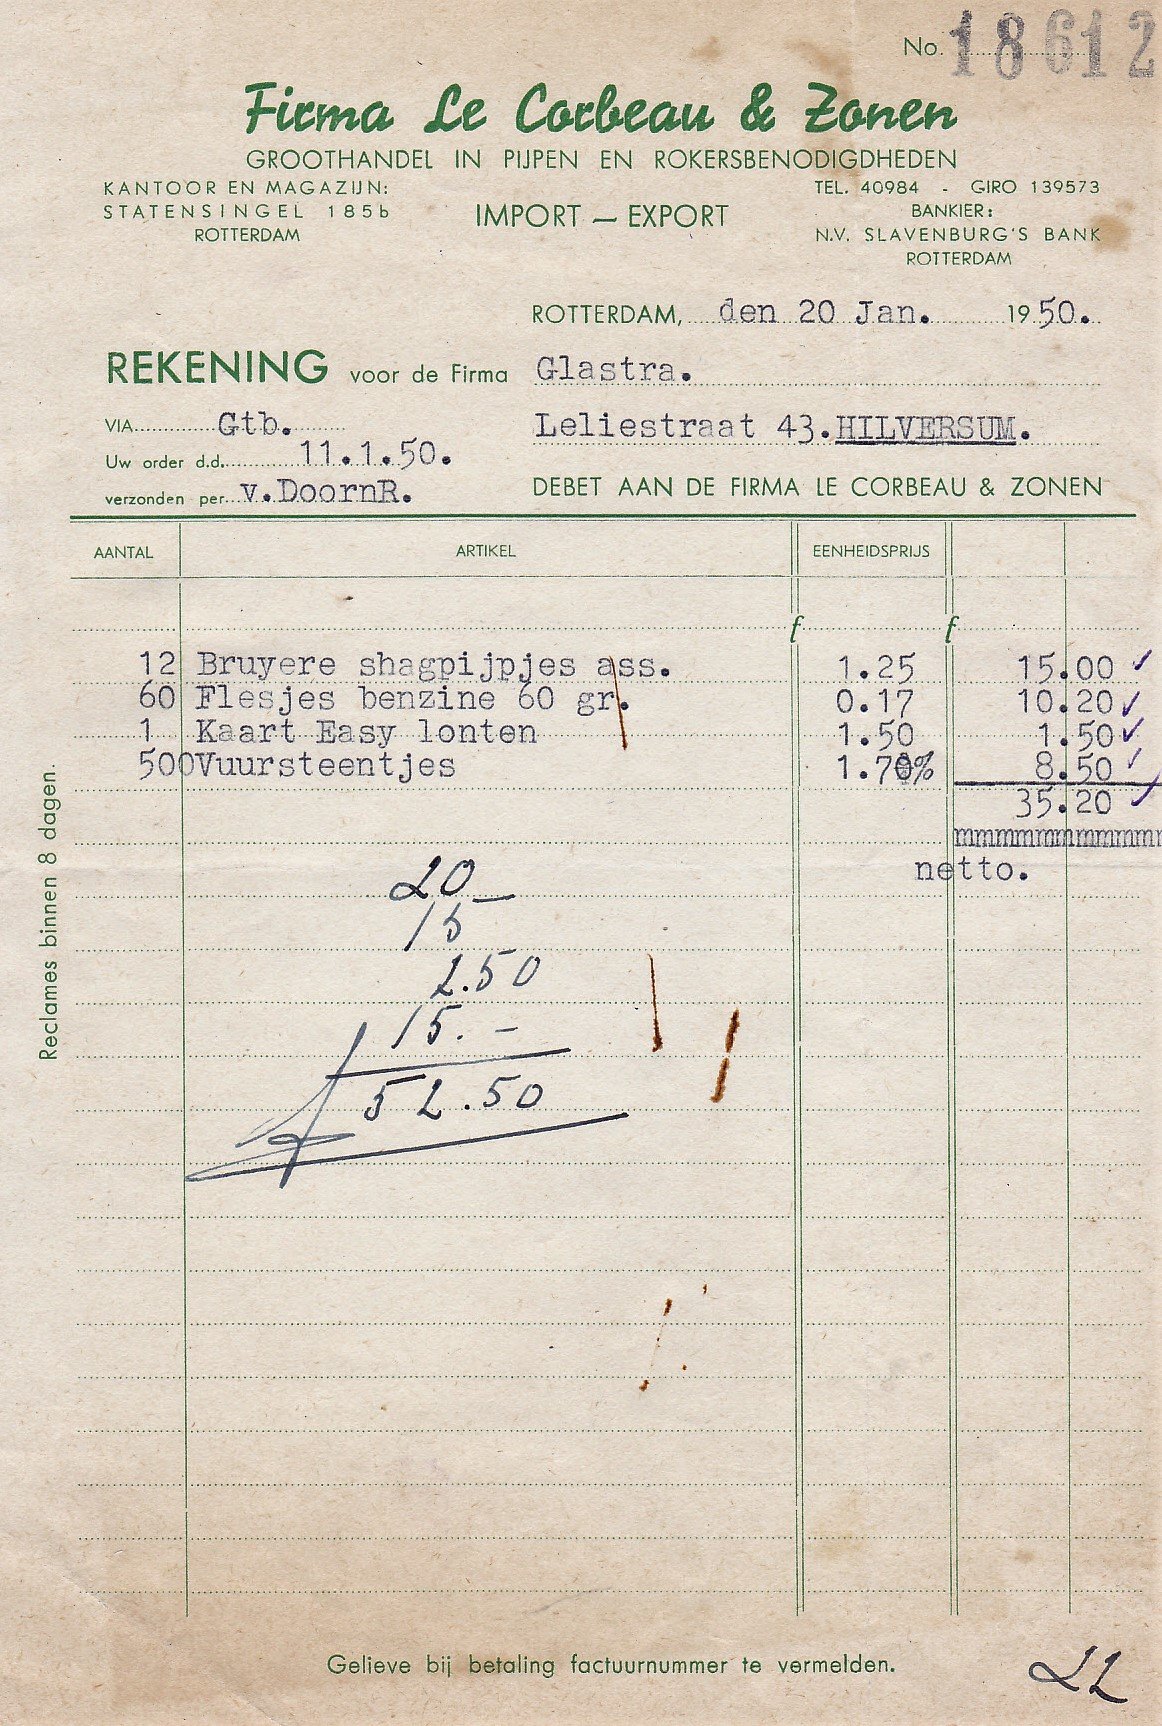 No. 18612
Firma Le Corbeau & Zonen
GROOTHANDEL IN PIJPEN EN ROKERSBENODIGDHEDEN
KANTOOR EN MAGAZIJN:
STATENSINGEL 185b
ROTTERDAM
IMPORT — EXPORT
TEL. 40984 - GIRO 139573
BANKIER:
N.V. SLAVENBURG'S BANK
ROTTERDAM
ROTTERDAM, den 20 Jan. 1950.
REKENING voor de Firma Glastra.
VIA Gtb. Leliestraat 43. HILVERSUM.
Uw order d.d. 11.1.50.
verzonden per v.DoornR. DEBET AAN DE FIRMA LE CORBEAU & ZONEN
AANTAL ARTIKEL EENHEIDSPRIJS
f f
12 Bruyere shagpijpjes ass. 1.25 15.00
60 Flesjes benzine 60 gr. 0.17 10.20
1 Kaart Easy lonten 1.50 1.50
500 Vuursteentjes 1.70% 8.50
35.20
mmmmmmmmmmmm
netto.
20 –
15
2.50
15. –
52.50
Reclames binnen 8 dagen.
Gelieve bij betaling factuurnummer te vermelden.